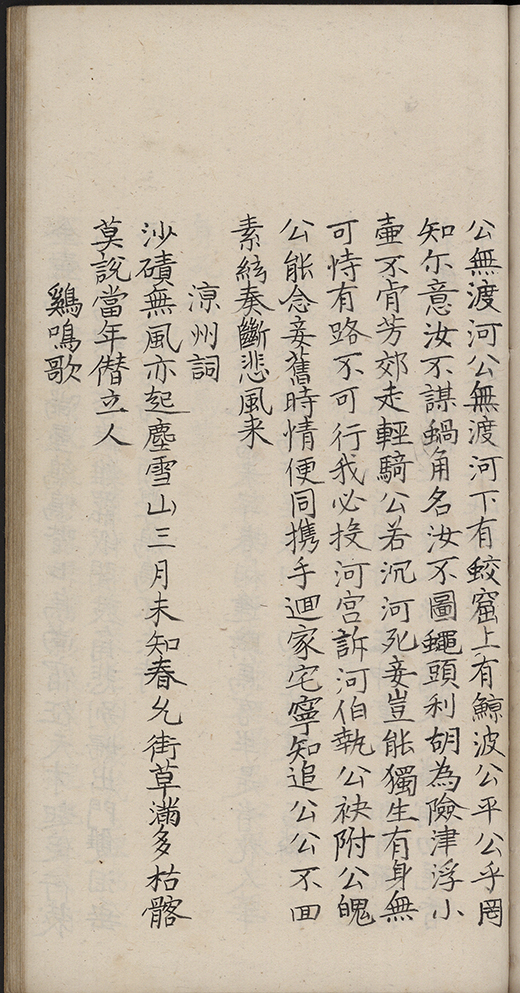 公無渡河公無渡河下有蛟窟上有鯨波公乎公乎罔
知尓意汝不謀蝸角名汝不圖蠅頭利胡為險津浮小
壷不肯芳郊走輕騎公若沉河死妾豈能獨生有身無
可恃有路不可行我必投河宫訴河伯執公袂附公魄
公能念妾舊時情便同携手迴家宅寧知追公公不囬
素絃奏斷悲風来
涼州詞
沙磧無風亦起塵雪山三月未知春幺街草滿多枯髂
莫說當年僣立人
鷄鳴歌